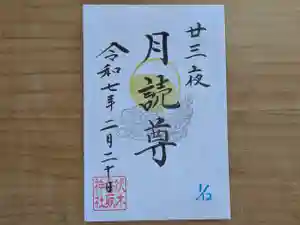 廿三夜
月読尊
令和七年二月二十日
1/12